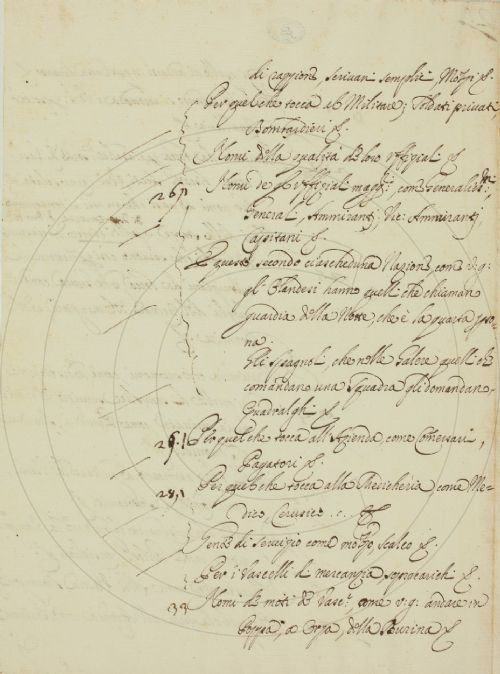 di raggione scrivan semplice Mozzi &.
Per quel che tocca al Militare; Soldati privati,
Bombardieri &.
Nomi della qualità de loro Uffitial &
26. Nomi de gl'uffitial magg:i come Generaliss:
General, Ammiranti, Vic: Ammiranti
Capitani &.
E questo secondo ciascheduna Nazione, come v:g:
gl'Olandesi hanno quell che chiaman
guardia della Notte, che è la quarta p̱so-
na.
Gli Spagnol, che nelle Galere quelli che
comandano una squadra gli domandano
Quadralghi &.
Per quel che tocca all'Azienda, come Conservari,
Pagatori &.
28. Per quel che tocca alla Medicheria, come Me-
dico, Cerusico &
Gente di servizio come mozzo, scalco &.
Per i Vascelli di mercanzia sopracarichi &.
33 Nomi de moti de Vasc:i come v:g: andare in
Poppa, a Orza, della Burina &